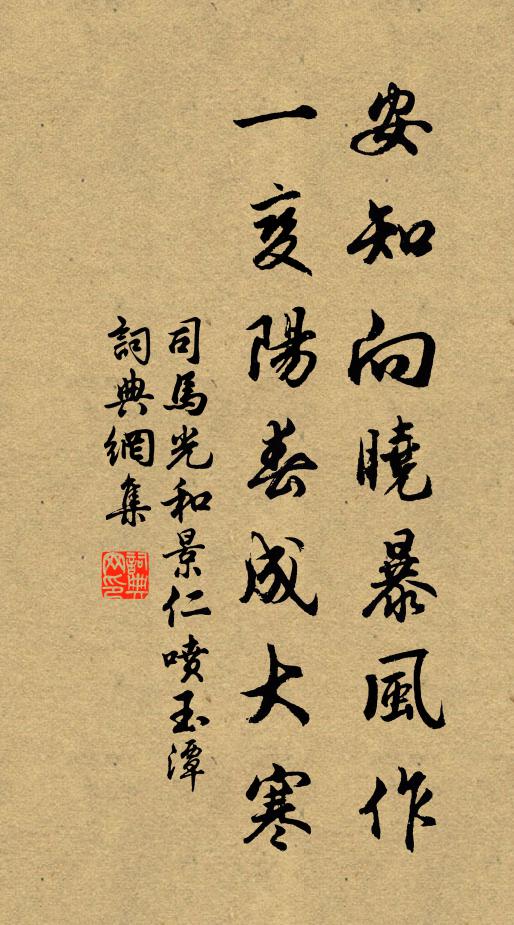 安知向曉暴風作
一变陽春成大寒
司馬光和景仁噴玉潭
詞典網集
詞典網印